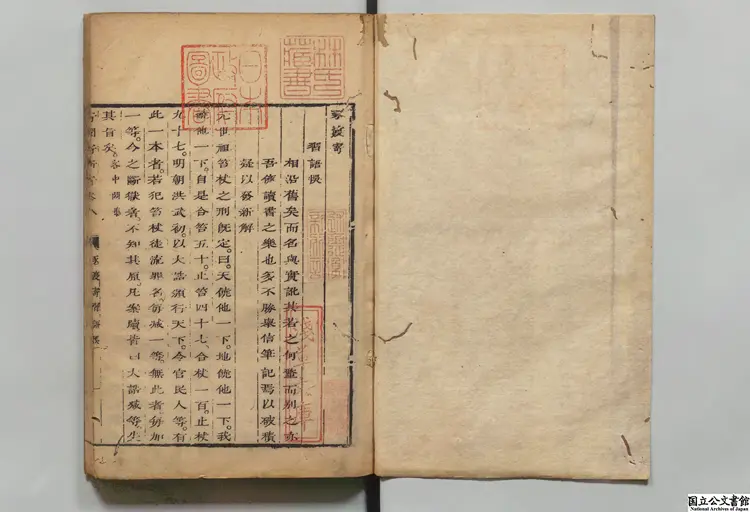 林氏藏書
日本政府圖書
淺草文庫
豕渡寄
習語悞
相沿舊矣而名與實訛其若之何鑿而別之亦
吾儕讀書之樂也多不勝舉信筆記焉以破積
疑以發新解
元世祖笞杖之刑旣定。曰。天饒他一下。地饒他一下。我
饒他一下。自是合笞五十。止笞四十七。合杖一百。止杖
九十七。明朝洪武初。以大誥頒行天下。令官民人等。有
此一本者。若犯笞杖徒流罪名。每減一等。無此者。每加
一等。今之斷獄者。不知其原。凡案牘皆曰大誥減等。失
其旨矣。客中閒集
寄園寄所寄卷八 豕渡寄習語悞
国立公文書館
National Archives of Japan